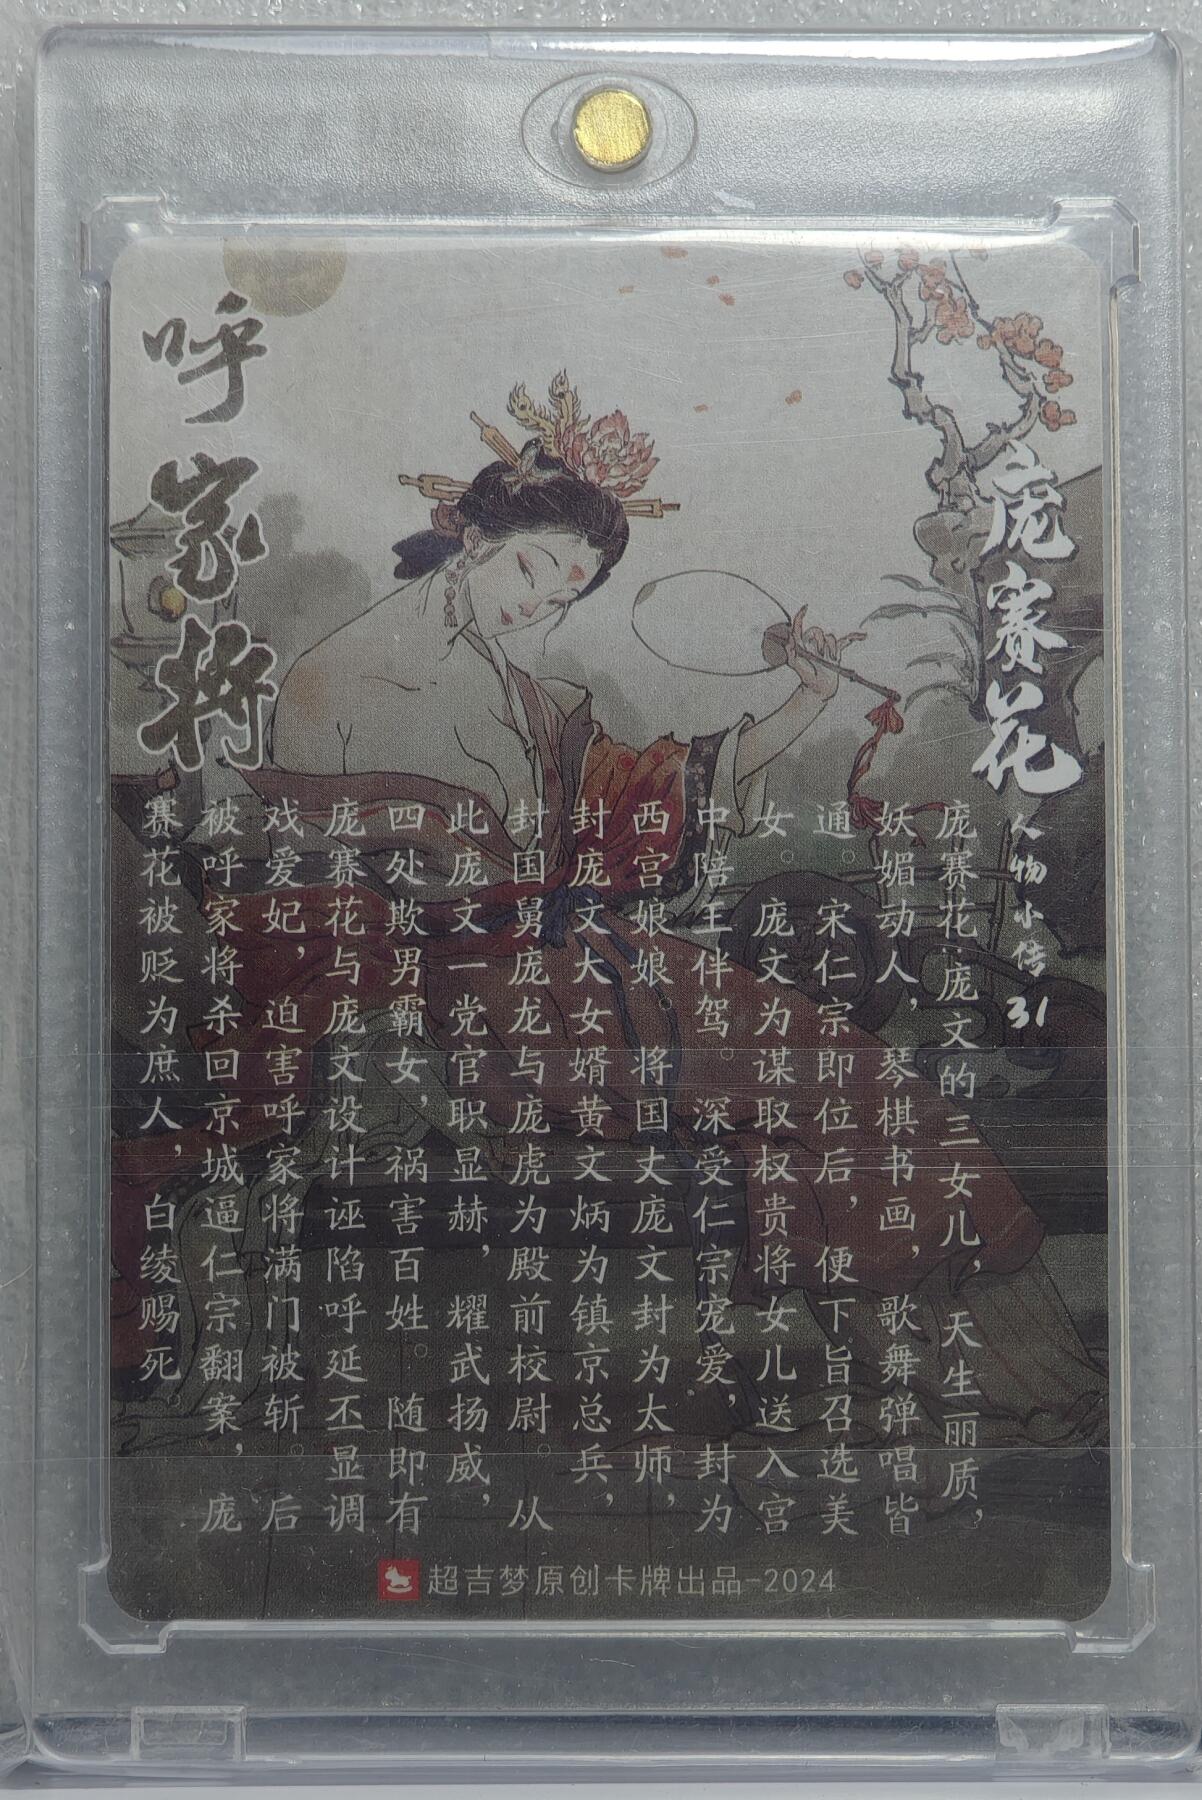 呼家将
庞赛花
人物小传 31
庞赛花·庞文的三女儿，天生丽质，
妖媚动人，琴棋书画，歌舞弹唱皆
通。宋仁宗即位后，便下旨召选美
女。庞文为谋取权贵将女儿送入宫
中陪王伴驾。深受仁宗宠爱，封为
西宫娘娘。将国丈庞文封为太师，
封庞文大女婿黄文炳为镇京总兵，
封国舅庞龙与庞虎为殿前校尉。从
此庞文一党官职显赫，耀武扬威，
四处欺男霸女，祸害百姓。随即有
庞赛花与庞文设计诬陷呼延丕显调
戏爱妃，迫害呼家将满门被斩。后
被呼家将杀回京城逼仁宗翻案，庞
赛花被贬为庶人，白绫赐死。
超吉梦原创卡牌出品-2024